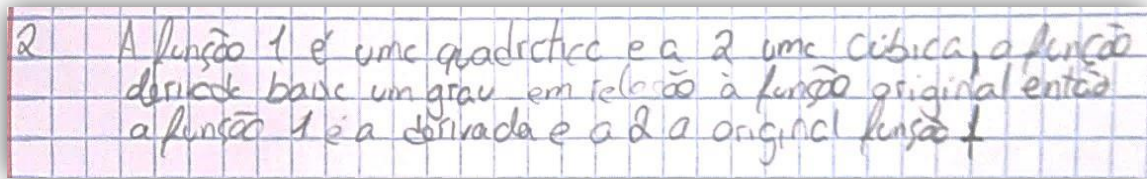 2 A função 1 é uma quadrática e a 2 uma cúbica, a função
derivada baixa um grau em relação à função original então
a função 1 é a derivada e a 2 a original função f